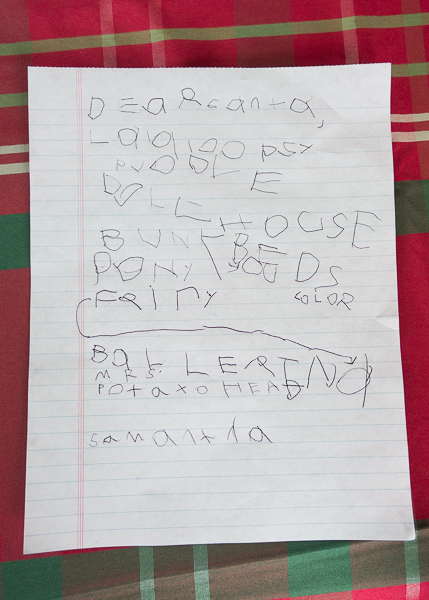 DEAR Santa,
LalalooPSY
DOLL HOUSE
BUNK BEDS
PONY
FAIRY COLOR
BALLERINA
MRS.
POTATO HEAD
Samantha